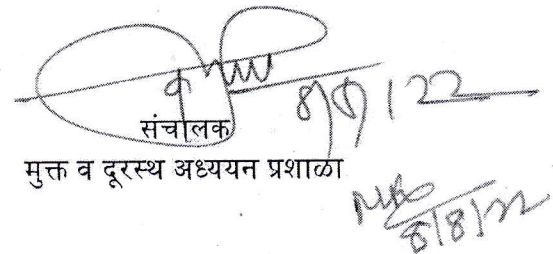 8/8/22
संचालक
मुक्त व दूरस्थ अध्ययन प्रशाळा
8/8/22